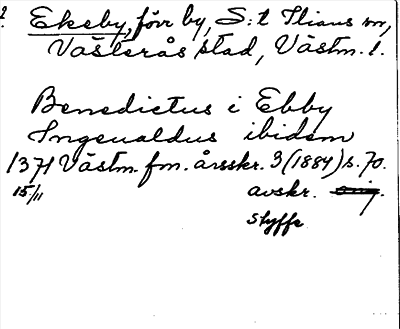 Ekeby, förr by, S:t Ilians sn,
Västerås stad, Västm. l.
Benedictus i Ebby
Ingeualdus ibidem
1371 Västm. fm. årsskr. 3 (1884) s. 70.
15/11 avskr. orig.
Styffe